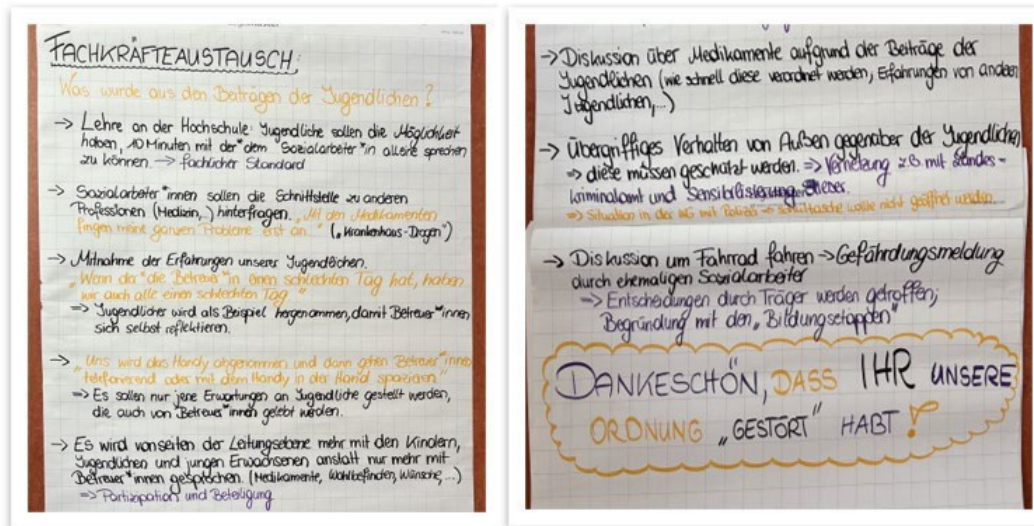 FACHKRÄFTEAUSTAUSCH:
Was wurde aus den Beiträgen der Jugendlichen?
→ Lehre an der Hochschule: Jugendliche sollen die Möglichkeit
haben, 10 Minuten mit der*dem Sozialarbeiter*in alleine sprechen
zu können. → fachlicher Standard
→ Sozialarbeiter*innen sollen die Schnittstelle zu anderen
Professionen (Medizin,) hinterfragen. „Mit den Medikamenten
fingen meine ganzen Probleme erst an." („Krankenhaus-Drogen")
→ Mitnahme der Erfahrungen unserer Jugendlichen.
„Wenn der*die Betreuer*in einen schlechten Tag hat, haben
wir auch alle einen schlechten Tag"
=> Jugendlicher wird als Beispiel hergenommen, damit Betreuer*innen
sich selbst reflektieren.
→ „Uns wird das Handy abgenommen und dann gehen Betreuer*innen
telefonierend oder mit dem Handy in der Hand spazieren"
=> Es sollen nur jene Erwartungen an Jugendliche gestellt werden,
die auch von Betreuer*innen gelebt werden.
→ Es wird vonseiten der Leitungsebene mehr mit den Kindern,
Jugendlichen und jungen Erwachsenen anstatt nur mehr mit
Betreuer*innen gesprochen. (Medikamente, Wohlbefinden, Wünsche, ...)
=> Partizipation und Beteiligung
→ Diskussion über Medikamente aufgrund der Beiträge der
Jugendlichen (wie schnell diese verordnet werden, Erfahrungen von anderen
Jugendlichen,...)
→ Übergriffiges Verhalten von Außen gegenüber der Jugendlichen
=> diese müssen geschützt werden. => Vernetzung z.B. mit Landes-
kriminalamt und Sensibilisierung
=> Situation in der WG mit Polizei => Schultasche wollte nicht geöffnet werden
→ Diskussion um Fahrrad fahren → Gefährdungsmeldung
durch ehemaligen Sozialarbeiter
=> Entscheidungen durch Träger werden getroffen;
Begründung mit den „Bildungsetappen"
DANKESCHÖN, DASS IHR UNSERE
ORDNUNG „GESTÖRT" HABT!